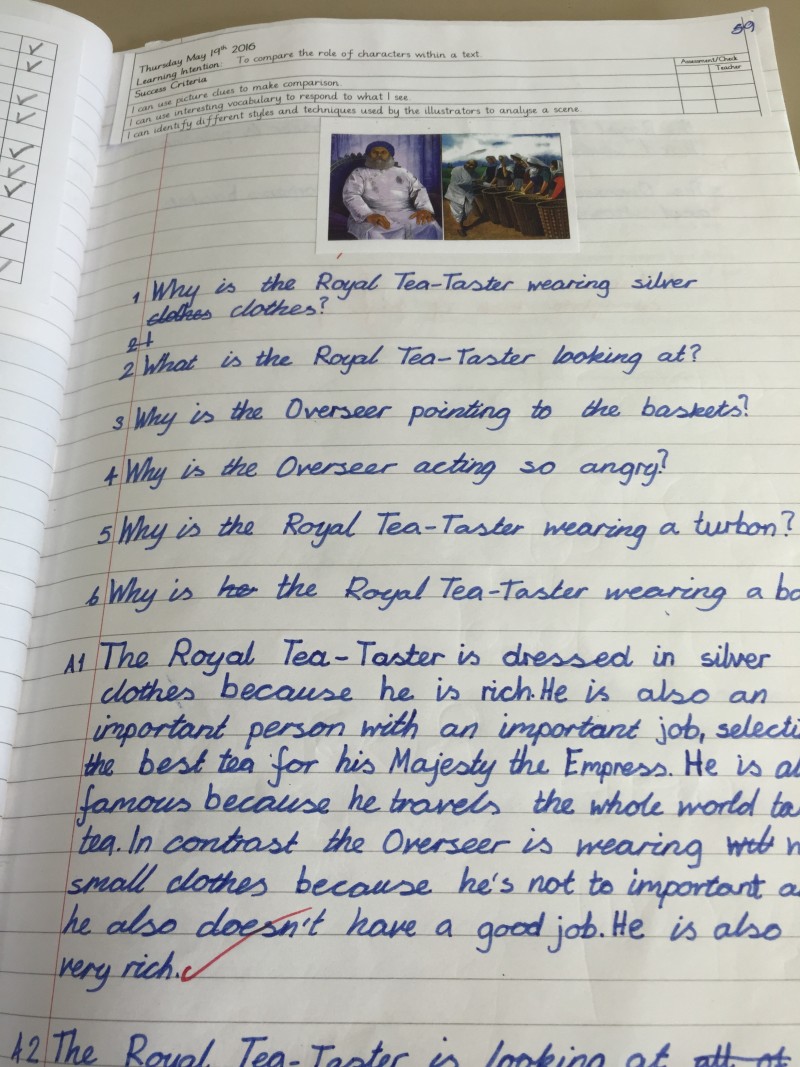 59
Thursday May 19th 2016
Learning Intention: To compare the role of characters within a text.
Success Criteria
Assessment/Check
Teacher
I can use picture clues to make comparison.
I can use interesting vocabulary to respond to what I see.
I can identify different styles and techniques used by the illustrators to analyse a scene.
1 Why is the Royal Tea-Taster wearing silver
clothes clothes?
2 What is the Royal Tea-Taster looking at?
3 Why is the Overseer pointing to the baskets?
4 Why is the Overseer acting so angry?
5 Why is the Royal Tea-Taster wearing a turbon?
6 Why is he the Royal Tea-Taster wearing a
A1 The Royal Tea-Taster is dressed in silver
clothes because he is rich. He is also an
important person with an important job, selecti
the best tea for his Majesty the Empress. He is al
famous because he travels the whole world ta
tea. In contrast the Overseer is wearing
small clothes because he's not to important a
he also doesn't have a good job. He is also
very rich.
A2 The Royal Tea-Taster is looking at all of